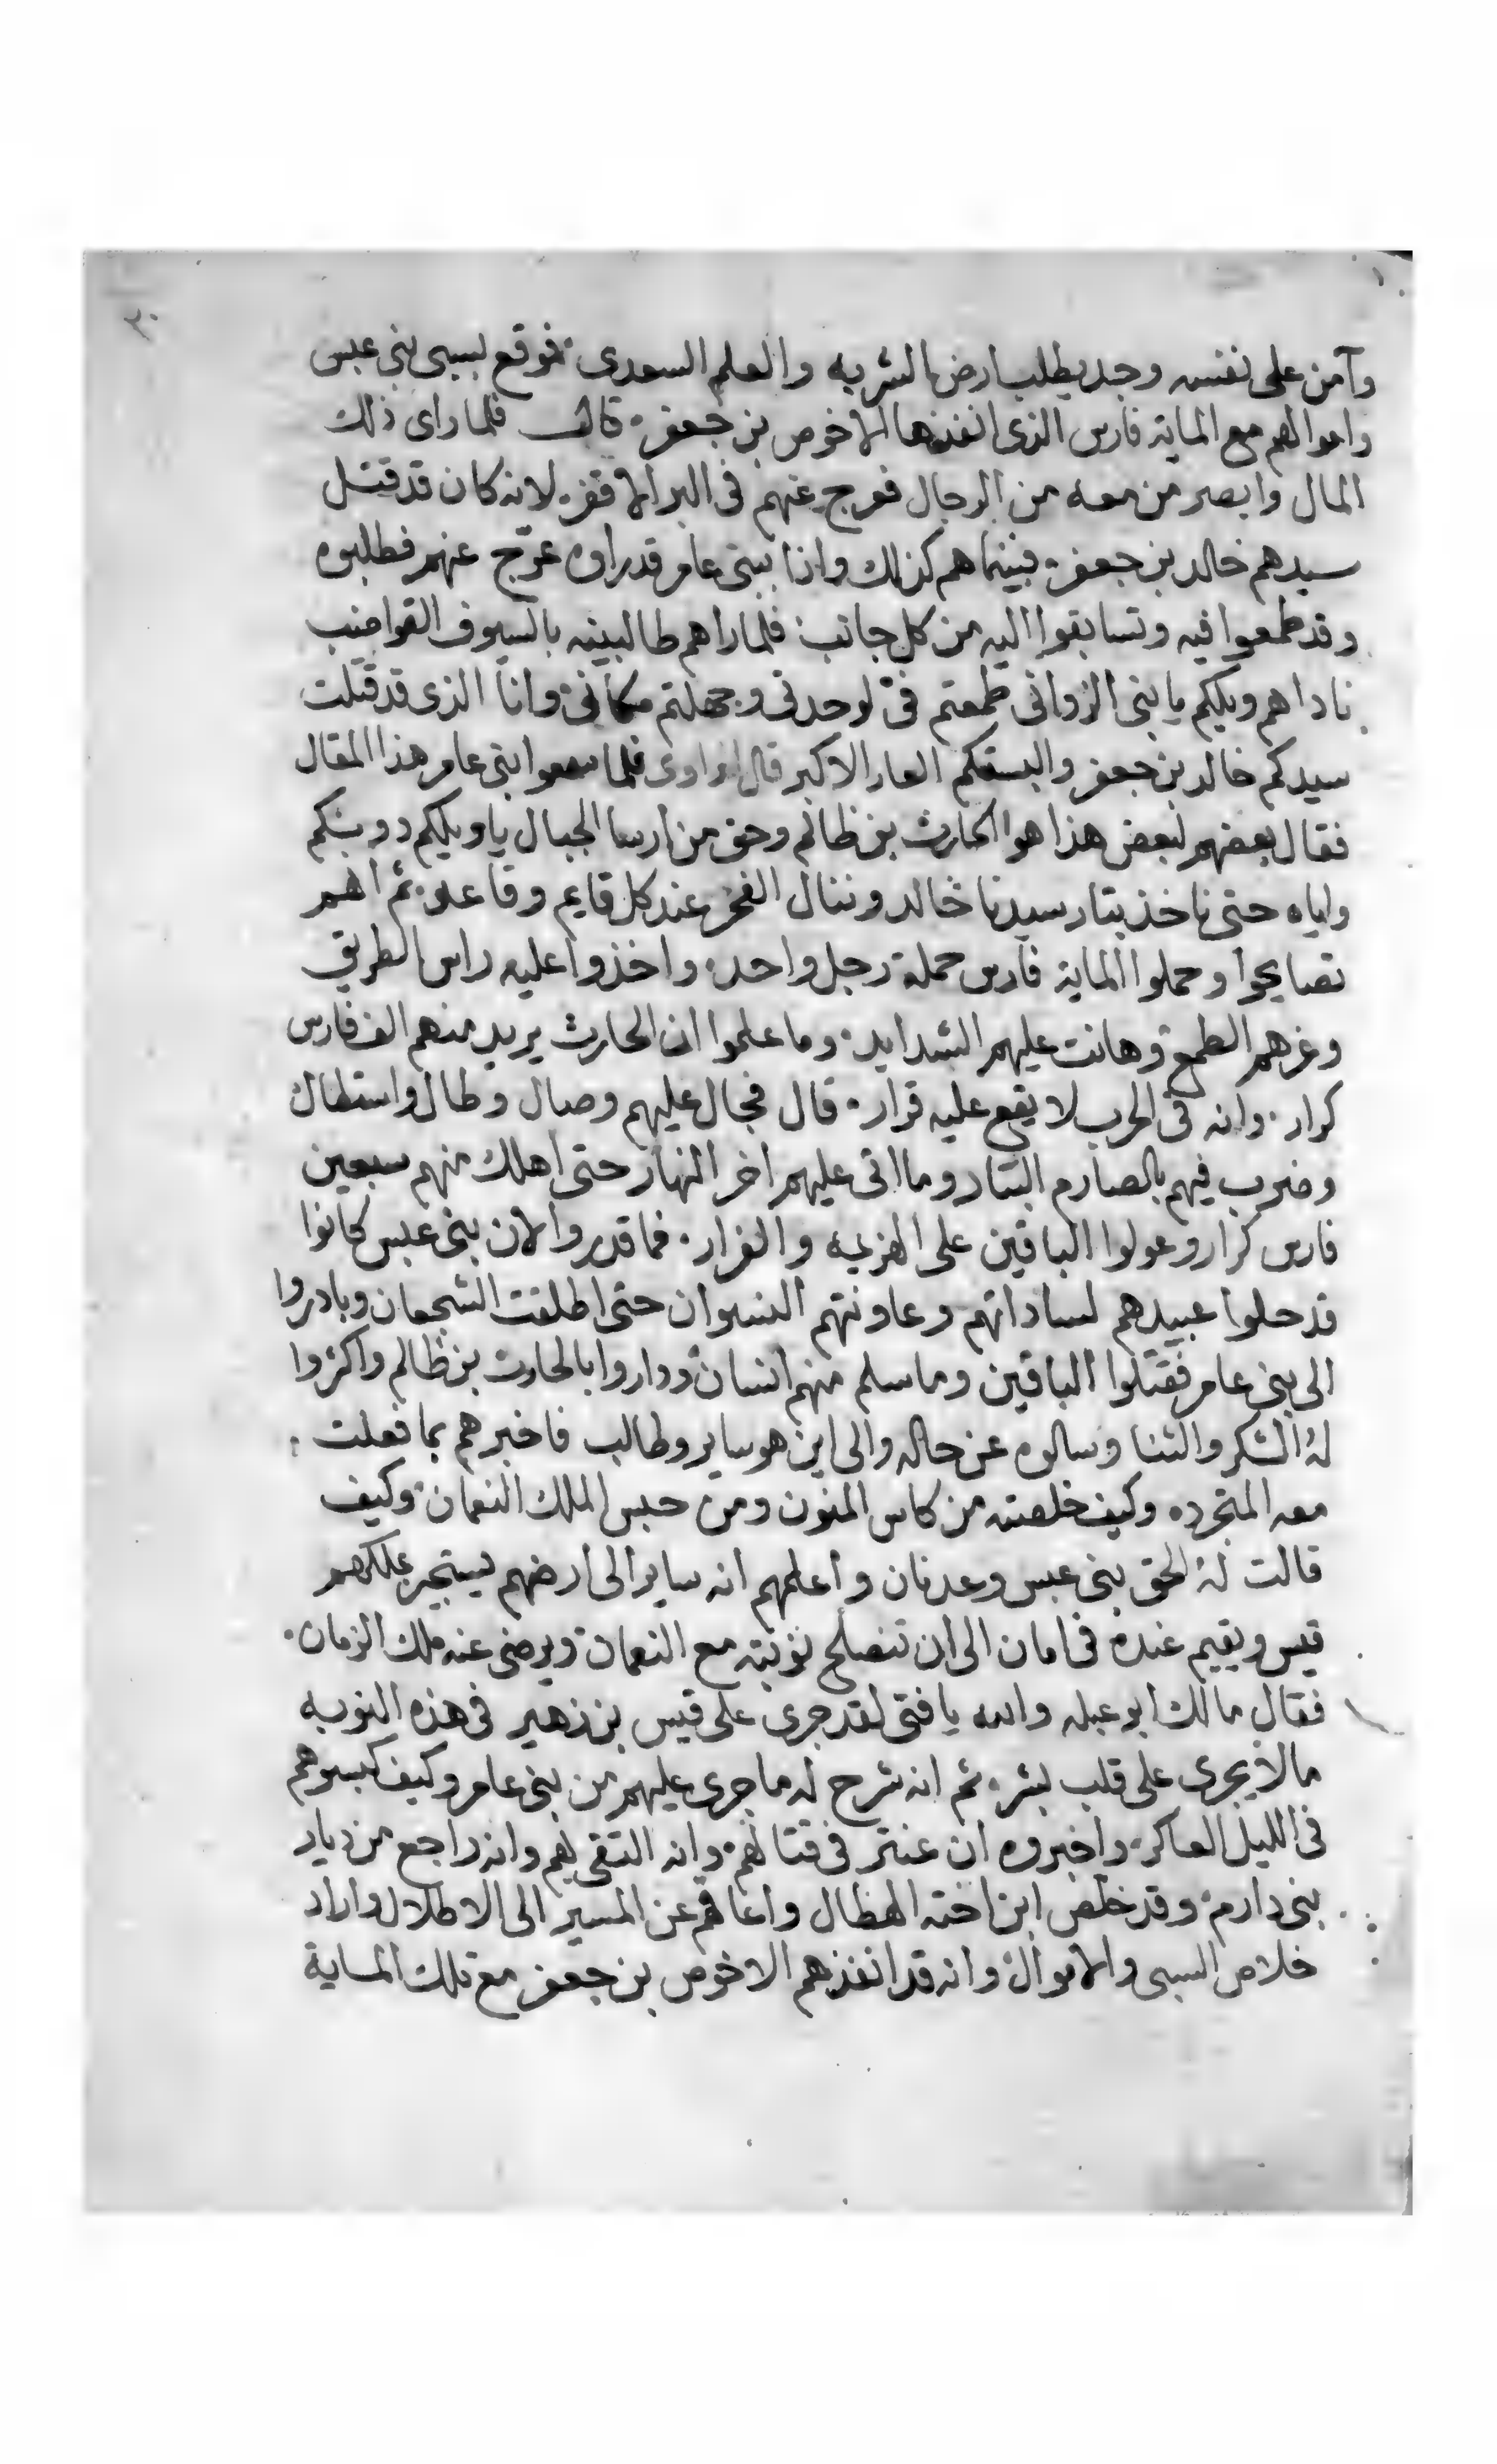 ٣٠
وآمن على نفسه وجد يطلب ارض الشربه والعلم السعدى فوقع بسبى بنى عبس
واموالهم مع الماية فارس الذى انفذها الاخوص بن جعفر قال فلما راى ذلك
المال وابصر من معه من الرجال فعرج عنهم فى البر الاقفر لانه كان قد قتل
سيدهم خالد بن جعفر فبينما هم كذلك واذا ببنى عامر قد راوه عرّج عنهم فطلبوه
وقد طمعوا فيه وتسابقوا اليه من كل جانب فلما راهم طالبينه بالسيوف القواضب
ناداهم ويلكم يا بنى الزوانى طمعتم فىّ لوحدتى وجهلتم مكانى وانا الذى قد قتلت
سيدكم خالد بن جعفر والبستكم العار الاكبر قال الراوى فلما سمعوا بنى عامر هذا المقال
فقال بعضهم لبعض هذا هو الحارث بن ظالم وحق من ارسا الجبال يا ويلكم دونكم
واياه حتى ناخذ بتار سيدنا خالد وننال الفخر عند كل قايم وقاعد ثم انهم
تصايحوا وحملوا الماية فارس حملة رجل واحد واخذوا عليه راس الطريق
وغرهم الطمع وهانت عليهم الشدايد وما علموا ان الحارث يريد منهم الف فارس
كرار وانه فى الحرب لا يقع عليه قرار قال فجال عليهم وصال وطال واستطال
وضرب فيهم بالصارم البتار وما اتى عليهم اخر النهار حتى اهلك منهم سبعين
فارس كرار وعولوا الباقين على الهزيمه والفرار فما قدروا لان بنى عبس كانوا
قد حلوا عبيدهم لساداتهم وعاونتهم النسوان حتى اطلقت الشجعان وبادروا
الى بنى عامر فقتلوا الباقين وما سلم منهم انسان وداروا بالحارث بن ظالم واكثروا
له الشكر والثنا وسالوه عن حاله والى اين هو ساير وطالب فاخبرهم بما فعلت
معه المتجرده وكيف خلصته من كاس المنون ومن حبس الملك النعمان وكيف
قالت له الحق بنى عبس وعدنان واعلمهم انه ساير الى ارضهم ليستجير بملكهم
قيس ويقيم عنده فى امان الى ان تنصلح نوبته مع النعمان ويرضى عنه ملك الزمان
فقال مالك ابو عبله والله يا فتى لقد جرى على قيس بن زهير فى هذه النوبه
مالا يجرى على قلب بشر ثم انه شرح له ما جرى عليهم من بنى عامر وكيف كبسوهم
فى الليل العاكر واخبروه ان عنتر فى قتالهم وانه التقى بهم وانه راجع من ديار
بنى دارم وقد خلص ابن اخته الهطال واعاقهم عن المسير الى الاطلال واراد
خلاص السبى والاموال وانه قد انفذهم الاخوص بن جعفر مع تلك الماية